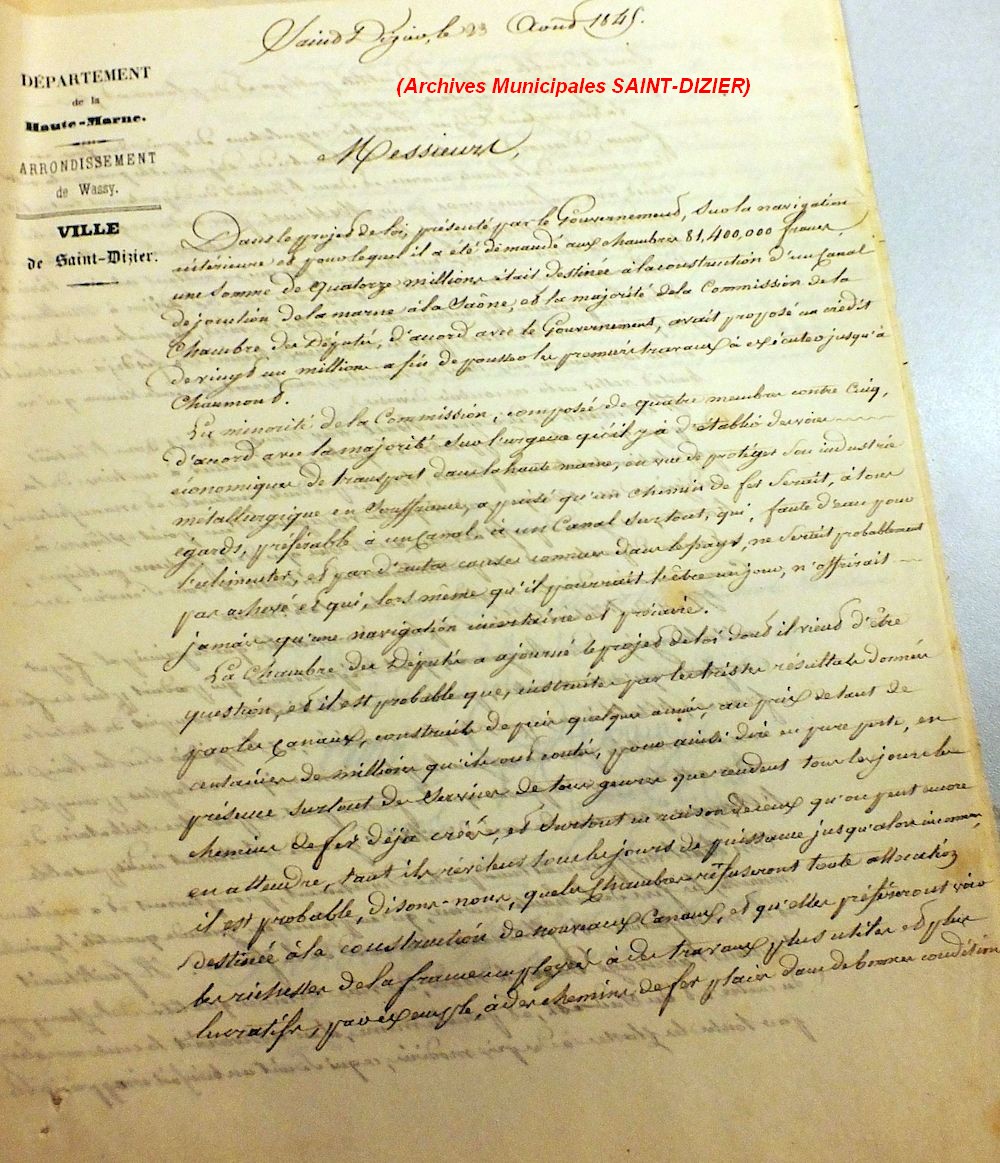 Saint Dizier, le 23 Août 1845.
(Archives Municipales SAINT-DIZIER)
DÉPARTEMENT
de la
Haute-Marne.
ARRONDISSEMENT
de Wassy.
VILLE
de Saint-Dizier.
Messieurs,
Dans le projet de loi, présenté par le Gouvernement, sur la navigation
intérieure et pour lequel il a été demandé aux chambres 81,400,000 francs,
une somme de quatorze millions était destinée à la construction d'un Canal
de jonction de la marne à la Saône, et la majorité de la Commission de la
Chambre des Députés, d'accord avec le Gouvernement, avait proposé un crédit
de vingt un millions afin de pousser les premiers travaux à exécuter jusqu'à
Chaumont.
La minorité de la Commission, composée de quatre membres contre cinq,
d'accord avec la majorité sur l'urgence qu'il y a d'établir des voies
économiques de transport dans la haute marne, en vue de protéger son industrie
métallurgique en souffrance, a pensé qu'un chemin de fer serait, à tous
égards, préférable à un Canal, à un Canal surtout, qui, faute d'eau pour
l'alimenter, et par d'autres causes connues dans le pays, ne serait probablement
pas achevé et qui, lors même qu'il pourrait l'être un jour, n'offrirait
jamais qu'une navigation incertaine et précaire.
La Chambre des Députés a ajourné le projet de loi dont il vient d'être
question, et il est probable que, instruite par les tristes résultats donnés
par les canaux, construits depuis quelques années, au prix de tant de
centaines de millions qu'ils ont coûté, pour ainsi dire en pure perte, en
présence surtout des services de tous genres que rendent tous les jours les
chemins de fer déjà créés, et surtout en raison de ceux qu'on peut encore
en attendre, tant ils révèlent tous les jours de puissance jusqu'alors inconnue,
il est probable, disons-nous, que les Chambres refuseront toute allocation
destinée à la construction de nouveaux Canaux, et qu'elles préféreront voir
les richesses de la france employées à des travaux plus utiles et plus
lucratifs, par exemple, à des chemins de fer placés dans de bonnes conditions